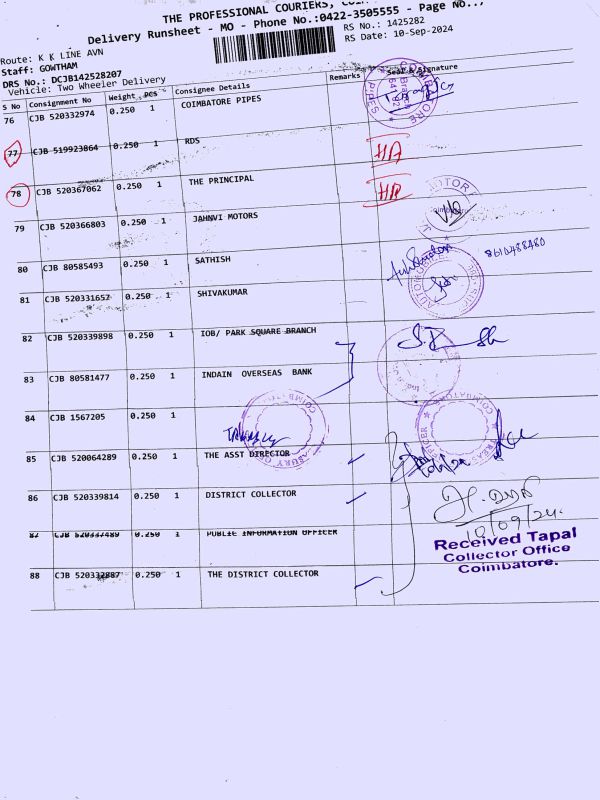 THE PROFESSIONAL COURIERS,
Delivery Runsheet - MO - Phone No.:0422-3505555 - Page No..
RS No.: 1425282
RS Date: 10-Sep-2024
Route: K K LINE AVN
Staff: GOWTHAM
DRS No.: DCJB142528207
Vehicle: Two Wheeler Delivery
S No Consignment No Weight PCS Consignee Details Remarks Seal & Signature
76 CJB 520332974 0.250 1 COIMBATORE PIPES
77 CJB 519923864 0.250 1 RDS
78 CJB 520367062 0.250 1 THE PRINCIPAL
79 CJB 520366803 0.250 1 JAHNVI MOTORS
80 CJB 80585493 0.250 1 SATHISH 8610488480
81 CJB 520331657 0.250 1 SHIVAKUMAR
82 CJB 520339898 0.250 1 IOB/ PARK SQUARE BRANCH
83 CJB 80581477 0.250 1 INDAIN OVERSEAS BANK
84 CJB 1567205 0.250 1
85 CJB 520064289 0.250 1 THE ASST DIRECTOR
86 CJB 520339814 0.250 1 DISTRICT COLLECTOR
10/09/24.
87 CJB 520337489 0.250 1 PUBLIC INFORMATION OFFICER
Received Tapal
Collector Office
Coimbatore.
88 CJB 520332887 0.250 1 THE DISTRICT COLLECTOR